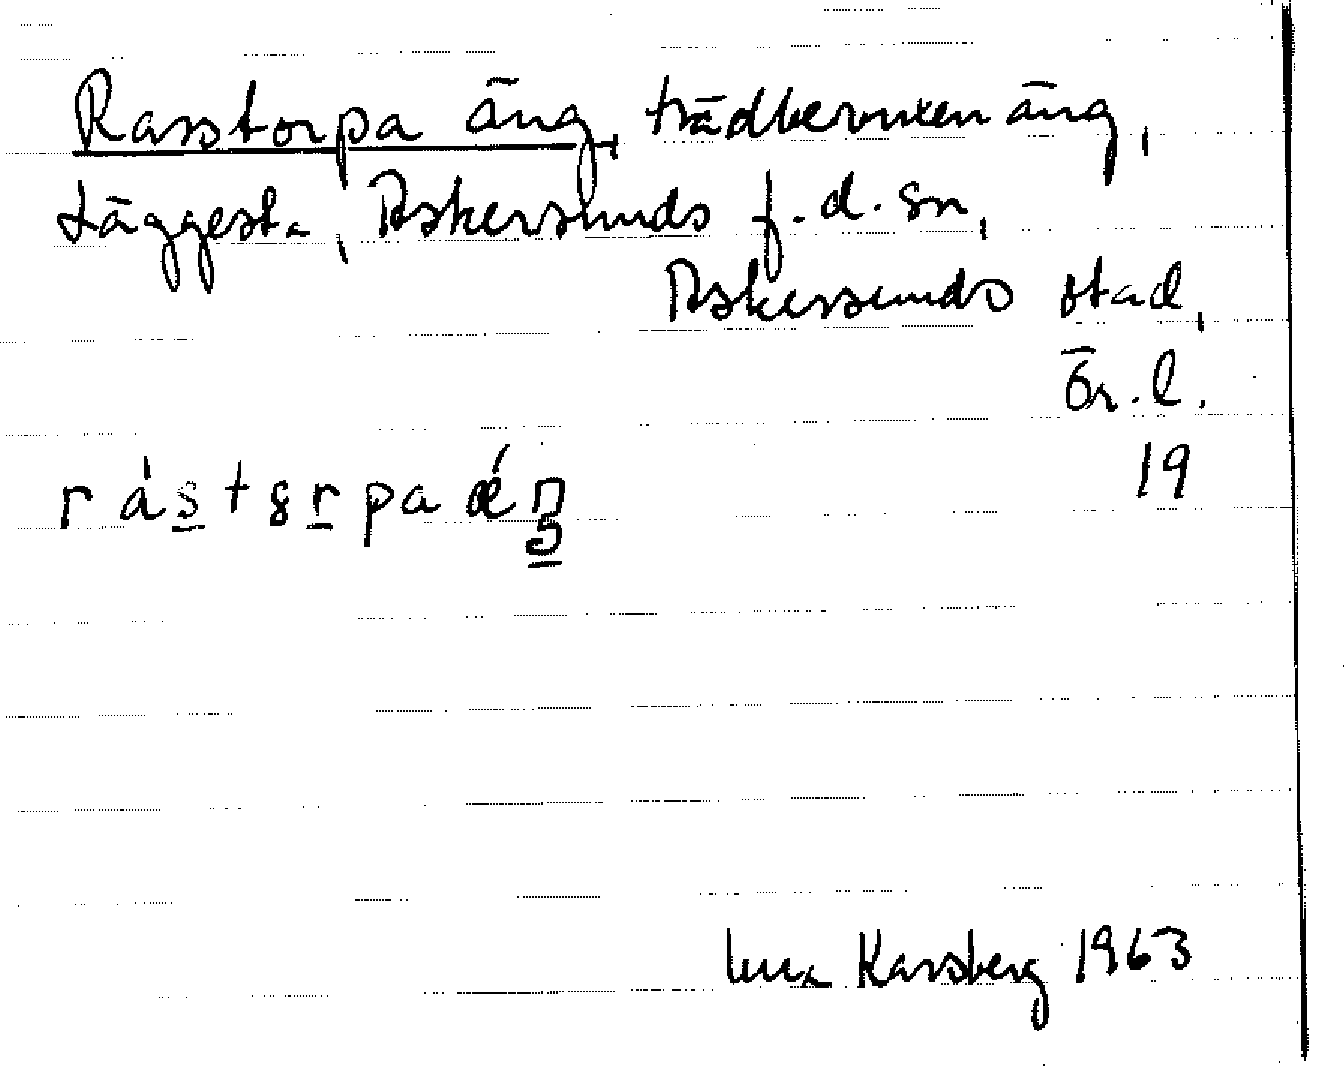 Rasstorpa äng, trädbevuxen äng,
Läggesta, Askersunds f.d. sn,
Askersunds stad,
Ör. l.
19
rástɞrpa ǽŋ
Karsberg 1963